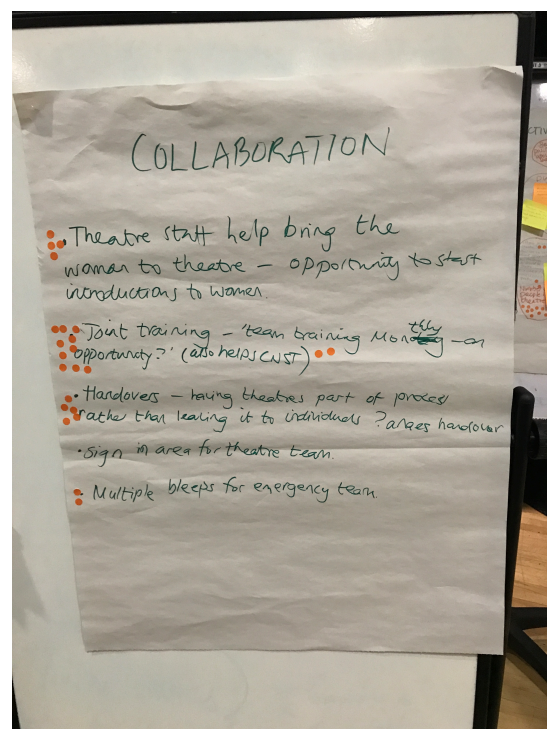 COLLABORATION
• Theatre staff help bring the
woman to theatre – opportunity to start
introductions to women.
• Joint training – 'team training Monthly – an
opportunity?' (also helps CNST)
• Handovers – having theatres part of process
rather than leaving it to individuals ? anaes handover
• Sign in area for theatre team.
• Multiple bleeps for emergency team.